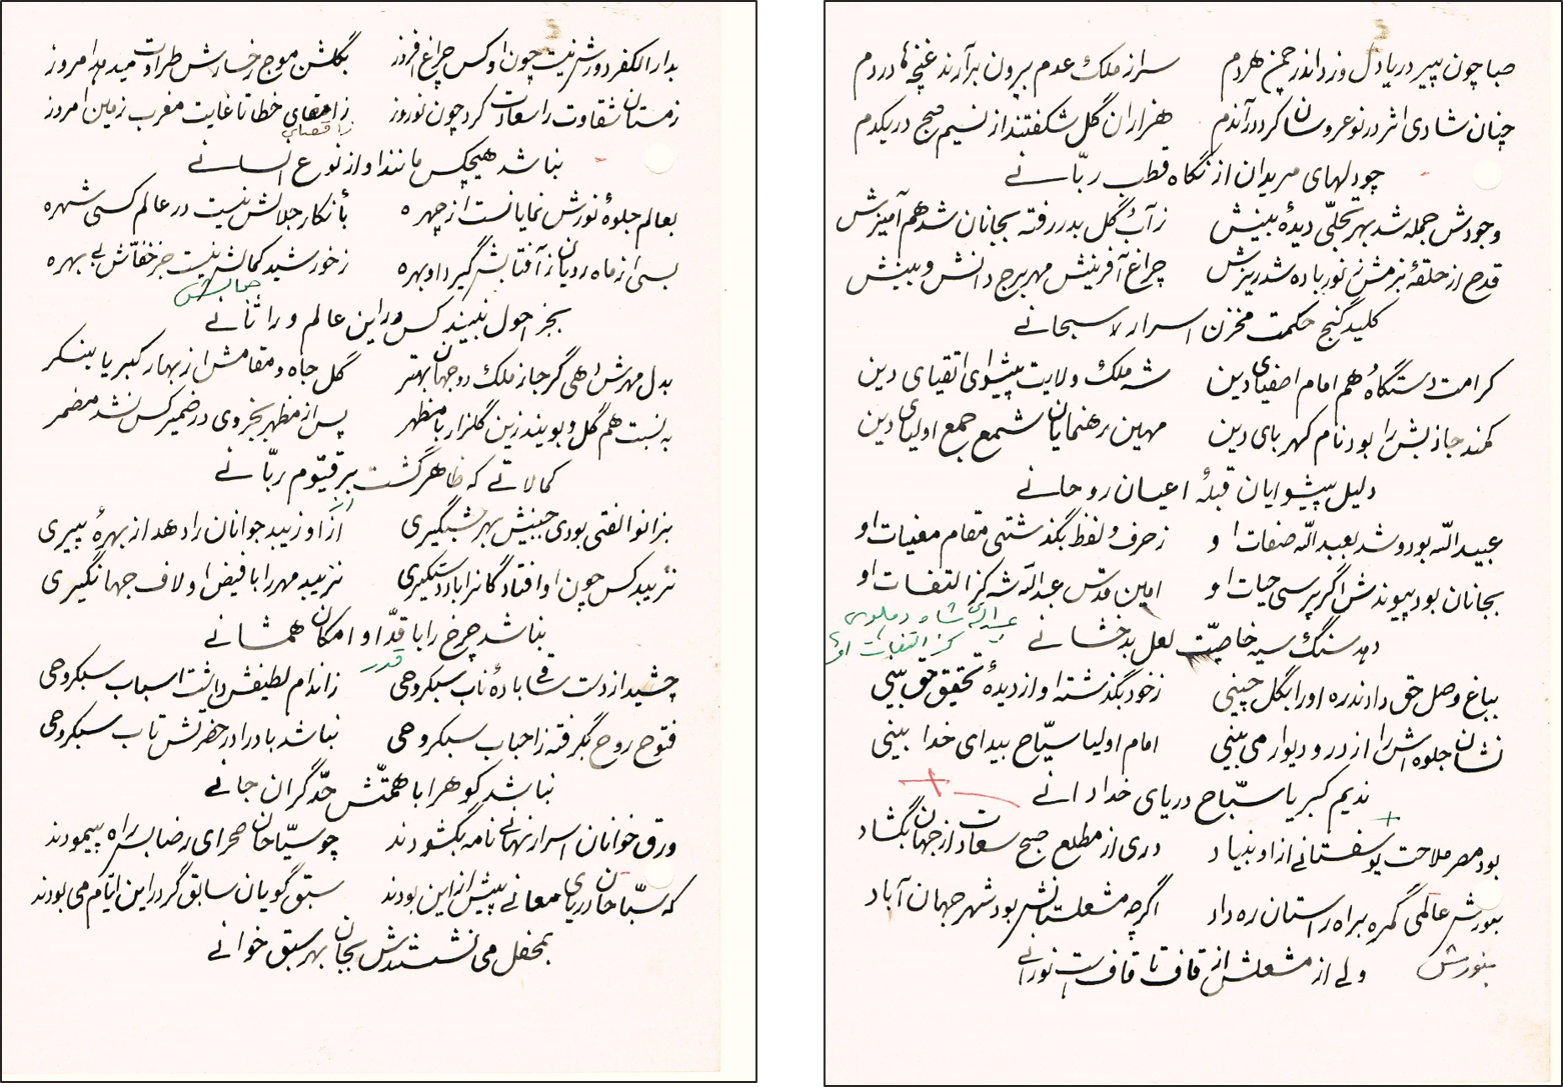 صبا چون پیر دریا دل وزد اندر چمن هردم سراز ملک عدم بیرون برآرند غنچه‌ها در دم
چنان شادی اثر در نوعروسان کرد در آندم هزاران گل شکفتند از نسیم صبح در یکدم
چو دلهای مریدان از نگاه قطب ربّانے
وجودش جمله شد بهر تجلّی دیدهٔ بینش ز آب گل بدر رفته بجانان شد هم آمیزش
قدح از حلقهٔ بزمش ز نور باده شد ریزش چراغ آفرینش مهر برج دانش و بینش
کلید گنج حکمت مخزن اسرار لا سبحانے
کرامت دستگاه هم امام اصفیای دین شه ملک ولایت پیشوای اتقیای دین
کمند جاذبش را بود نام کهربای دین مهین رهنمایان شمع جمع اولیای دین
دلیل پیشوایان قبلهٔ اعیان روحانے
عبیداللّه بود و شد بعبداللّه صفات او ز حرف و لفظ بگذشتی مقام مغیبات او
بجانان بود پیوندش اگر پرسی حیات او امین قدس عبداللّه شه کز التفات او
عبداللّه شاه دهلوی
کز التفات او
دهد سنگ سیه خاصیّت لعل بدخشانے
بباغ وصل حق دادند ره او را بگل چینی ز خود بگذشته او از دیدهٔ تحقیق حق بینی
نشان جلوه اش را از در و دیوار می بینی امام اولیا سیّاح بیدای خدا بینی
ندیم کبریا سبّاح دریای خدا دانے
بود مصر ملاحت یوسفستانے از او بنیاد دری از مطلع صبح سعادت از جهان بگشاد
بنورش عالمی گمره براه راستان ره داد اگرچه مشعلستانش بود شهر جهان آباد
بنورش
ولے از مشعلش از قاف تا قاف است نورانے
بدار الکفر دورش نیست چون او کس چراغ افروز بگلشن موج رخسارش طراوت میدهد امروز
زمستان شقاوت را سعادت کرد چون نوروز ز اقصای خطا تا غایت مغرب زمین امروز
ز اقصای
نباشد هیچکس مانند او از نوع انسانے
بعالم جلوهٔ نورش نمایانست از چهره بانکار جلالش نیست در عالم کسی شهره
بسی از ماه رویان ز آفتابش گیرد او بهره ز خورشید کمالش نیست جز خفّاش بے بهره
بجز احول نبیند کس در این عالم ورا ثانے
بدل مهرش هی گر جا ز ملک دو جهان بهتر گل جاه و مقامش از بهار کبریا بنگر
به نسبت هم گل و بویند زین گلزار با مظهر پس از مظهر بجز وی در ضمیر کس نشد مضمر
کمالاتے که ظاهر گشت بر قیّوم ربّانے
بزانو الفتی بودی جبینش بهر شبگیری از او زیبد جوانان را دهد از بهرهٔ پیری
نزیبد کس چون او افتادگانرا با دستگیری نزیبد مهر را با فیض او لاف جهانگیری
نباشد چرخ را با قدّ او امکان همشانے
قدر
چشید از دست ساقی بادهٔ ناب سبکروحی ز اندام لطیفش داشت اسباب سبکروحی
فتوح روح بگرفته ز احباب سبکروحی نباشد باد را در حضرتش تاب سبکروحی
نباشد کوه را با همتّش حدّ گران جانے
ورق خوانان اسرار نهانے نامه بگشودند چو سیّاحان صحرای رضا بس راه پیمودند
که سبّاحان دریای معانے پیش از این بودند سبق گویان سابق گر در این ایّام می بودند
بمحفل می نشستندش بجان بهر سبق خوانے